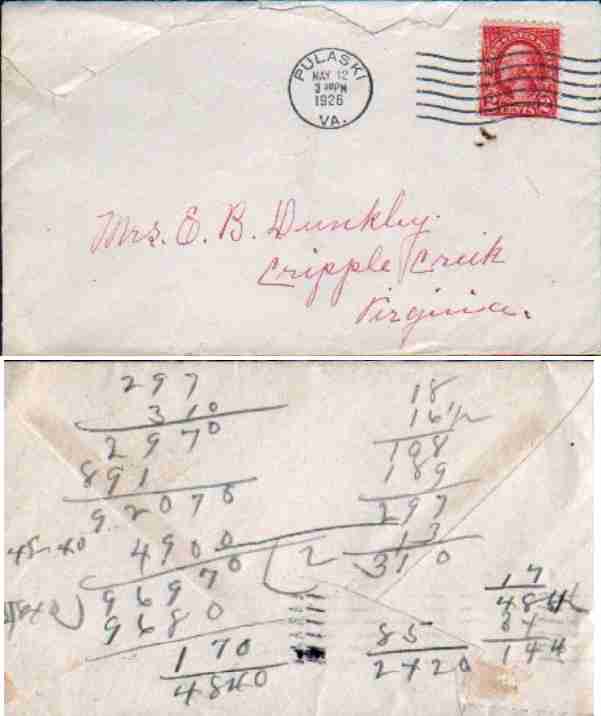 PULASKI
MAY 12
3 30PM
1926
VA.
2 CENTS 2
Mrs. E. B. Dunkley.
Cripple Creek
Virginia.
297
310
2970
891
92070
4900
96970
9680
170
4840
18
16 1/2
108
189
297
13
310
2
85
2420
17
484
84
144